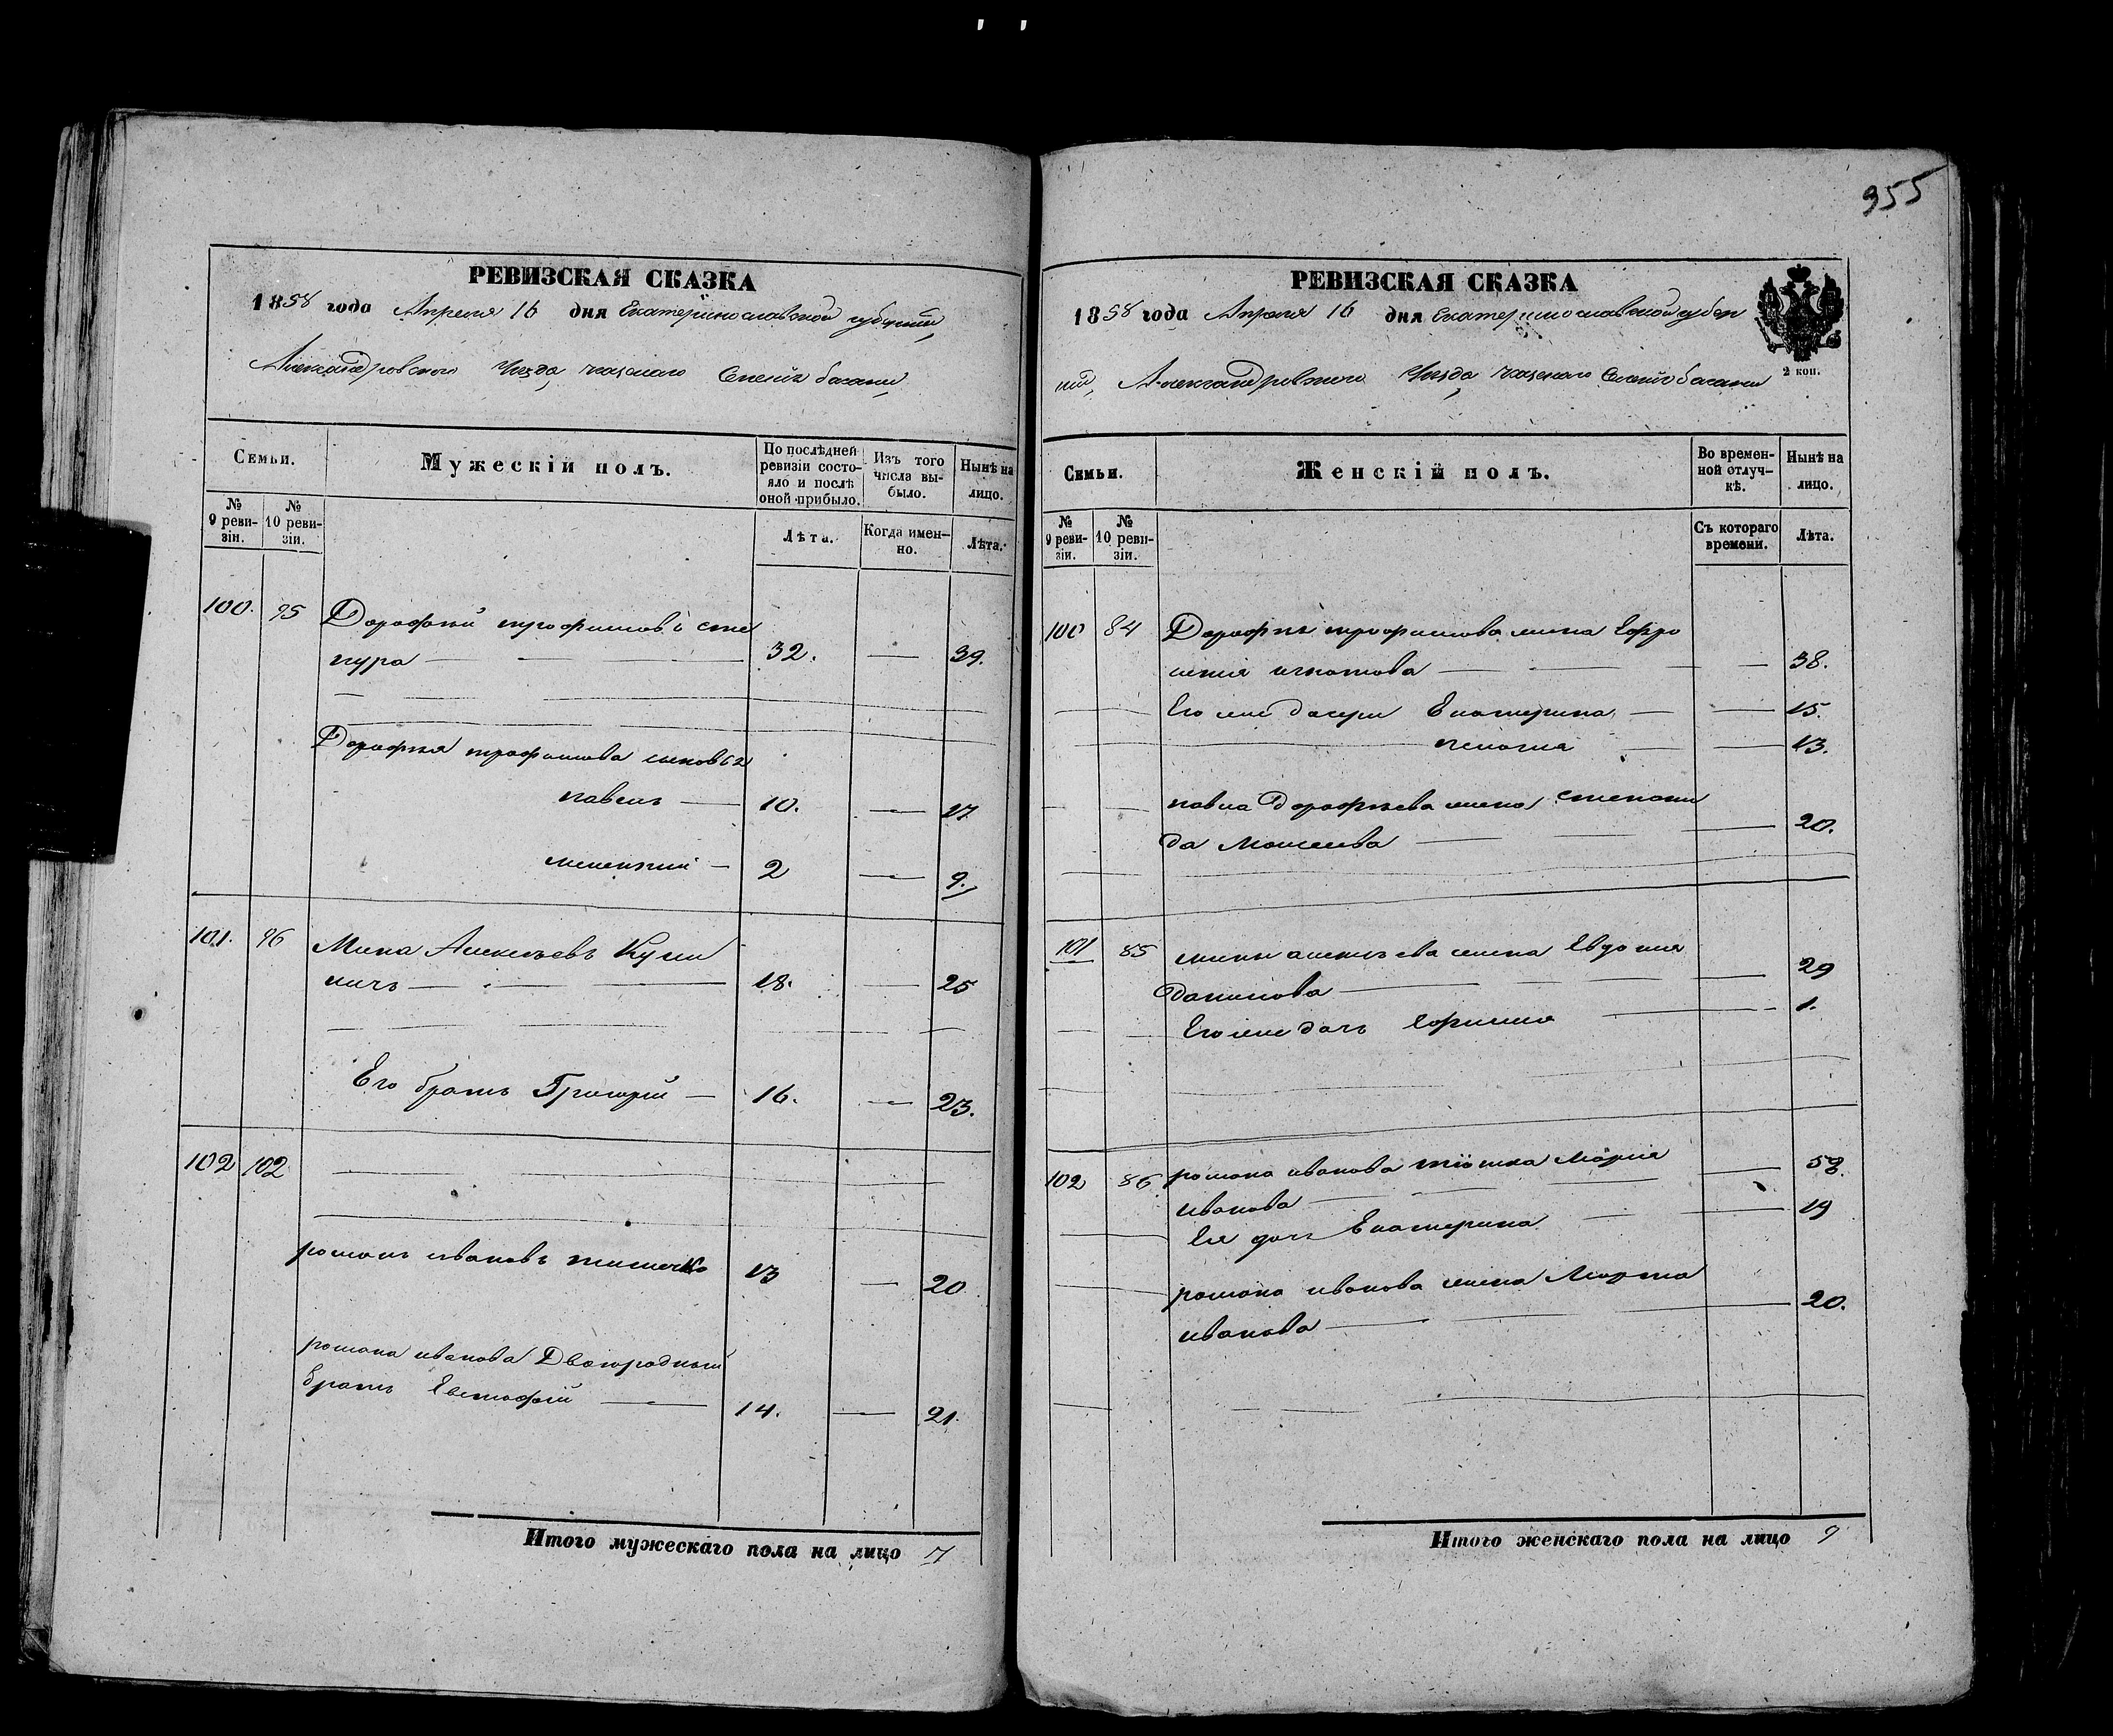 955
РЕВИЗСКАЯ СКАЗКА
1858 года Апреля 16 дня Екатеринославской губернии,
Александровского Уезда, казенаго
Семьи.
Мужескій полъ.
По послѣдней ревизіи состояло и послѣ оной прибыло.
Изъ того числа выбыло.
Нынѣ на лицо.
№ 9 ревизіи.
№ 10 ревизіи.
Лѣта.
Когда именно.
Лѣта.
100. 95 Дорофѣй трофимовъ
пура 32. 39.
Дорофѣя трофимова сыновья
павелъ 10. 17
2 9.
101. 96 Мина Алексѣевъ Куш
ничъ 18. 25
Его братъ Григорій 16. 23.
102 102
романъ ивановъ 13 20
романа иванова Двоюродный
братъ Евстафій 14. 21.
Итого мужескаго пола на лицо 7
РЕВИЗСКАЯ СКАЗКА
1858 года Апреля 16 дня Екатеринославской губер
нии, Александровского Уезда казенаго
2 коп.
Семьи.
Женскій полъ.
Во временной отлучкѣ.
Нынѣ на лицо.
№ 9 ревизіи.
№ 10 ревизіи.
Съ котораго времени.
Лѣта.
100 84 Дорофѣя трофимова жена Ефро
синия игнатова 38.
Его же дочери Екатерина 15.
пелагия 13.
павла Дорофѣева жена степани
да Моисеева 20.
101 85 мины алексѣева жена Евдокия
Данилова 29
Его же дочь 1.
102 86 романа иванова тіотка Мария
иванова 58.
Ея дочь Екатерина 19
романа иванова жена Марфа
иванова 20.
Итого женскаго пола на лицо 9